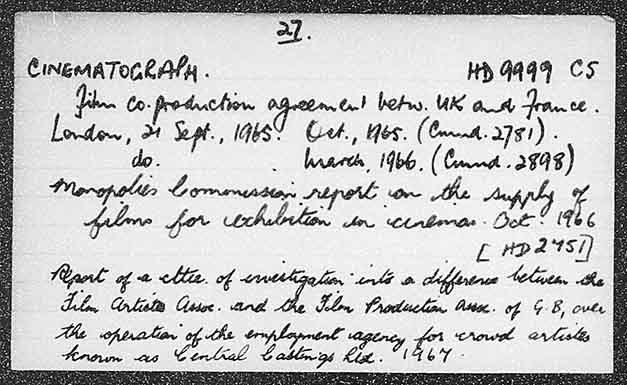 27.
CINEMATOGRAPH. HD 9999 C5
Film co-production agreement betw. UK and France.
London, 21 Sept., 1965. Oct., 1965. (Cmnd. 2781).
do. March, 1966. (Cmnd. 2898)
Monopolies Commission report on the supply of
films for exhibition in cinemas. Oct. 1966
[HD 2751]
Report of a cttee. of investigation into a difference between the
Film Artistes Assoc. and the Film Production Assn. of G.B, over
the operation of the employment agency for crowd artistes
known as Central Castings Ltd. 1967.